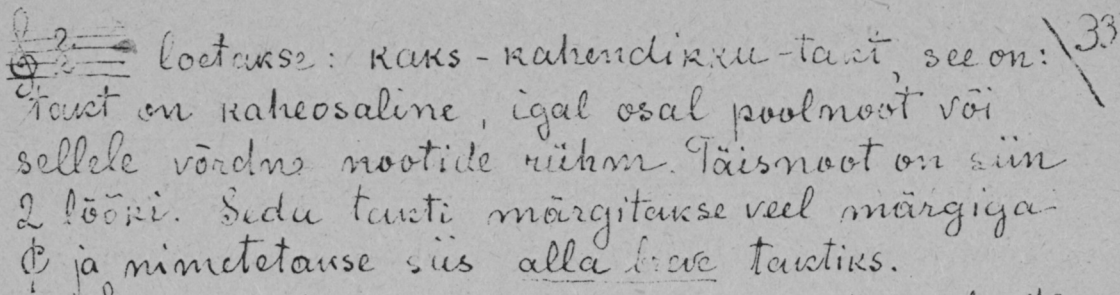 2/2 loetakse: kaks-kahendikku-takt, see on: 33
takt on kaheosaline, igal osal poolnoot või
sellele võrdne nootide rühm. Täisnoot on siin
2 lööki. Seda takti märgitakse veel märgiga
¢ ja nimetetakse siis alla breve taktiks.